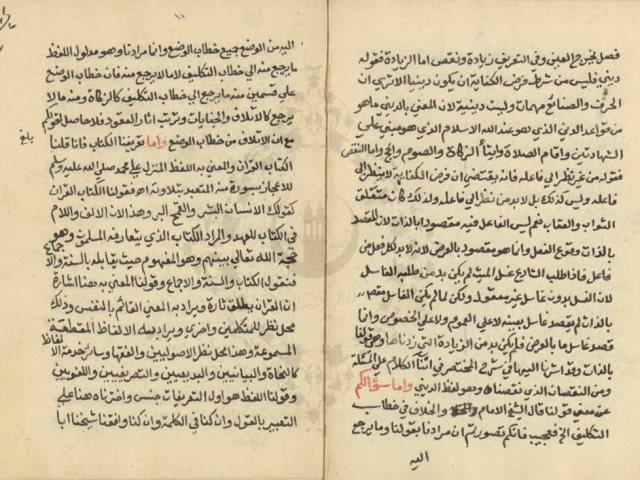 فصل بخبر حج العين وفي التعريف زيادة ونقص اما الزيادة فقوله
ديني فليس من شرط فرض الكفاية ان يكون دينيا الا ترى ان
الحرف والصنائع مهمات وليست دينية لان المعني بالديني ما هو
من قواعد الدين الذي هو عند الله الاسلام الذي هو مبني على
الشهادتين واقام الصلاة وايتاء الزكاة والصوم والحج واما النقص
فقوله من غير نظر الى فاعله فانه يقتضي ان فرض الكفاية لا ينظر الى
فاعله وليس كذلك بل لا بد من نظر الى فاعله ولذلك كان متعلق
الثواب والعقاب نعم ليس الفاعل فيه مقصودا بالذات لان المقصد
بالذات وقوع الفعل وانما هو مقصود بالعرض لانه لا بد لكل فعل من
فاعل فاذا طلب الشارع غسل الميت لم يكن بد من طلبه الغاسل
لان الغسل بدون غاسل غير معقول ولكن لما لم يكن الغاسل مقصدا
بالذات لم يقصد غاسل بعينه لا على العموم ولا على الخصوص وانما
قصد غاسل ما بالعرض فلم يكن بد من الزيادة التي زدناها
بالذات وقد اشرنا اليها في شرح المختصر في اثناء الكلام على المسئلة
ومن النقصان الذي نقصناه وهو لفظ الديني واما سؤالكم
عن معنى قولنا قال الشيخ الامام والخلاف في خطاب
التكليف الخ فعجيب فانكم تصورتم ان مرادنا بقولنا وما يرجع
اليه
اليه من الوضع جميع خطاب الوضع وانما مرادنا وهو مدلول اللفظ
ما يرجع منه الى خطاب التكليف لا ما لا يرجع منه فان خطاب الوضع
على قسمين منه ما يرجع الى خطاب التكليف كالزكاة ومنه ما لا
يرجع كالاتلاف والجنايات وترتب اثار العقود فلا حاصل لقولكم
بلغ
مع ان الاتلاف من خطاب الوضع واما تعريفنا الكتاب فانا قلنا
الكتاب القرآن والمعني به اللفظ المنزل على محمد صلى الله عليه وسلم
للاعجاز بسورة منه المتعبد بتلاوته اهـ فقولنا الكتاب القرآن
كقولك الانسان البشر والقمح البر وهذا لان الالف واللام
في الكتاب للعهد والمراد الكتاب الذي يتعارفه المسلمون وهو
حجة الله تعالى بينهم وهو المفهوم حيث يقابله بالسنة والاجماع
فنقول الكتاب والسنة والاجماع وقولنا المعني به هنا اشارة
ان القرآن يطلق تارة ويراد به المعنى القائم بالنفس وذلك
محل نظر المتكلمين واخرى ويراد به الالفاظ المقطعة
المسموعة وهذا محل نظر الاصوليين والفقها وسائر خدمة الالفاظ
كالنحاة والبيانيين والبديعيين والتصريفيين واللغويين
وقولنا اللفظ هو اول التعريفات جنس واخترناه هنا على
التعبير بالقول وان كنا في الكلمة وان كنا وافقنا شيخنا ابا